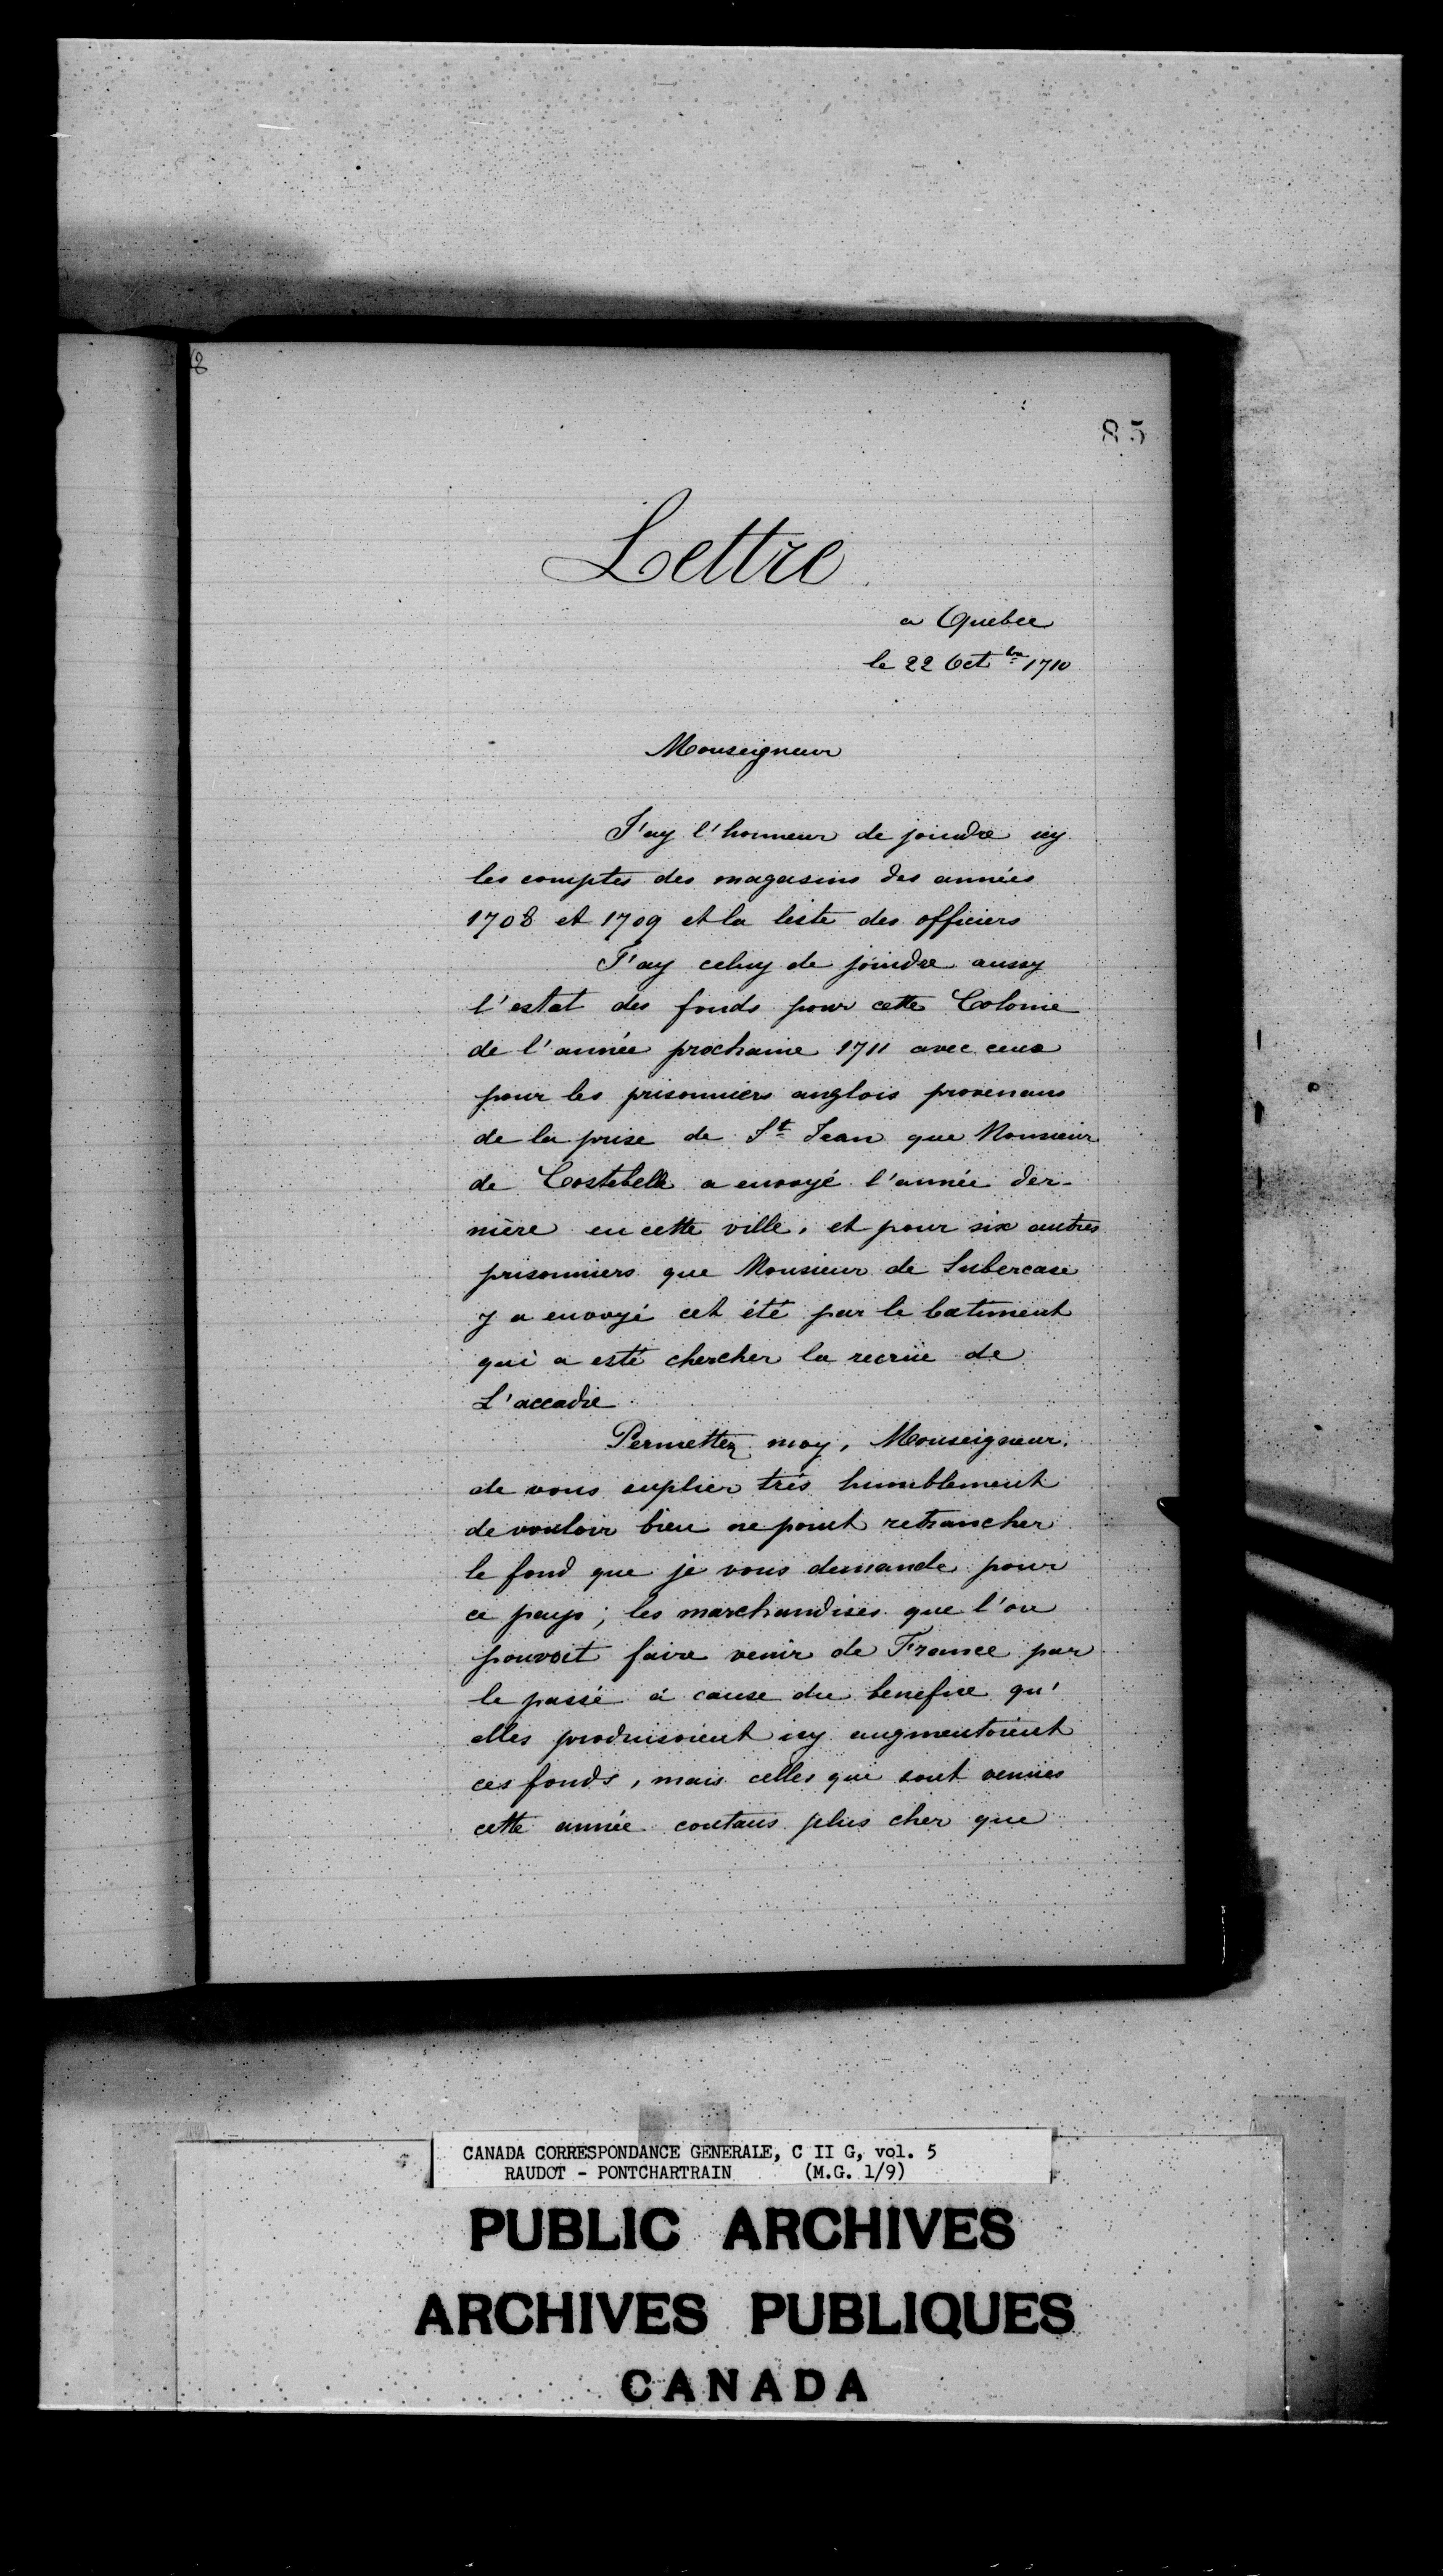 85
Lettre
a Quebec
le 22 Oct.bre 1710
Monseigneur
J'ay l'honneur de joindre icy
les comptes des magasins des années
1708 et 1709 et la liste des officiers
J'ay celuy de joindre aussy
l'estat des fonds pour cette Colonie
de l'année prochaine 1711 avec ceux
pour les prisonniers anglois provenans
de la prise de St Jean que Monsieur
de Costebelle a envoyé l'année der-
nière en cette ville, et pour six autres
prisonniers que Monsieur de Subercase
y a envoyé cet été par le batiment
qui a esté chercher la recrüe de
L'accadie
Permettez moy, Monseigneur,
de vous suplier très humblement
de vouloir bien ne point retrancher
le fond que je vous demande pour
ce pays; les marchandises que l'on
pouvoit faire venir de France par
le passé à cause du benefice qu'
elles produisoient icy augmentoient
ces fonds, mais celles qui sont venües
cette année coutans plus cher que
CANADA CORRESPONDANCE GENERALE, C II G, vol. 5
RAUDOT - PONTCHARTRAIN (M.G. 1/9)
PUBLIC ARCHIVES
ARCHIVES PUBLIQUES
CANADA